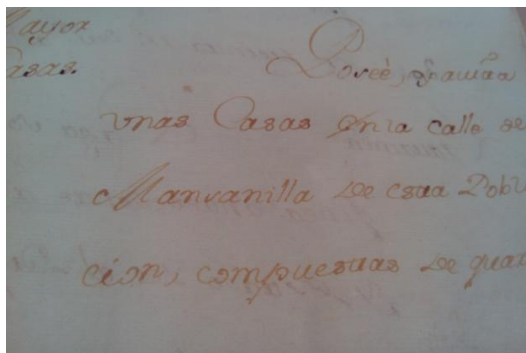 Mayor
Casas.
Poseè,
unas Casas en la calle de
Manzanilla de esta Pobla
cion, compuestas de quat